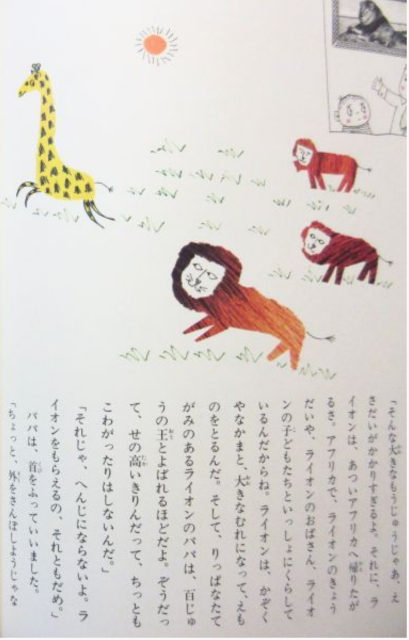 「そんな大きなもうじゅうじゃあ、え
さだいがかかりすぎるよ。それに、ラ
イオンは、あついアフリカへ帰りたが
るさ。アフリカで、ライオンのきょう
だいや、ライオンのおばさん、ライオ
ンの子どもたちといっしょにくらして
いるんだからね。ライオンは、かぞく
やなかまと、大きなむれになって、えも
のをとるんだ。そして、りっぱなたて
がみのあるライオンのパパは、百じゅ
うの王とよばれるほどだよ。ぞうだっ
て、せの高いきりんだって、ちっとも
こわがったりはしないんだ。」
「それじゃ、へんじにならないよ。ラ
イオンをもらえるの、それともだめ。」
パパは、首をふっていいました。
「ちょっと、外をさんぽしようじゃな